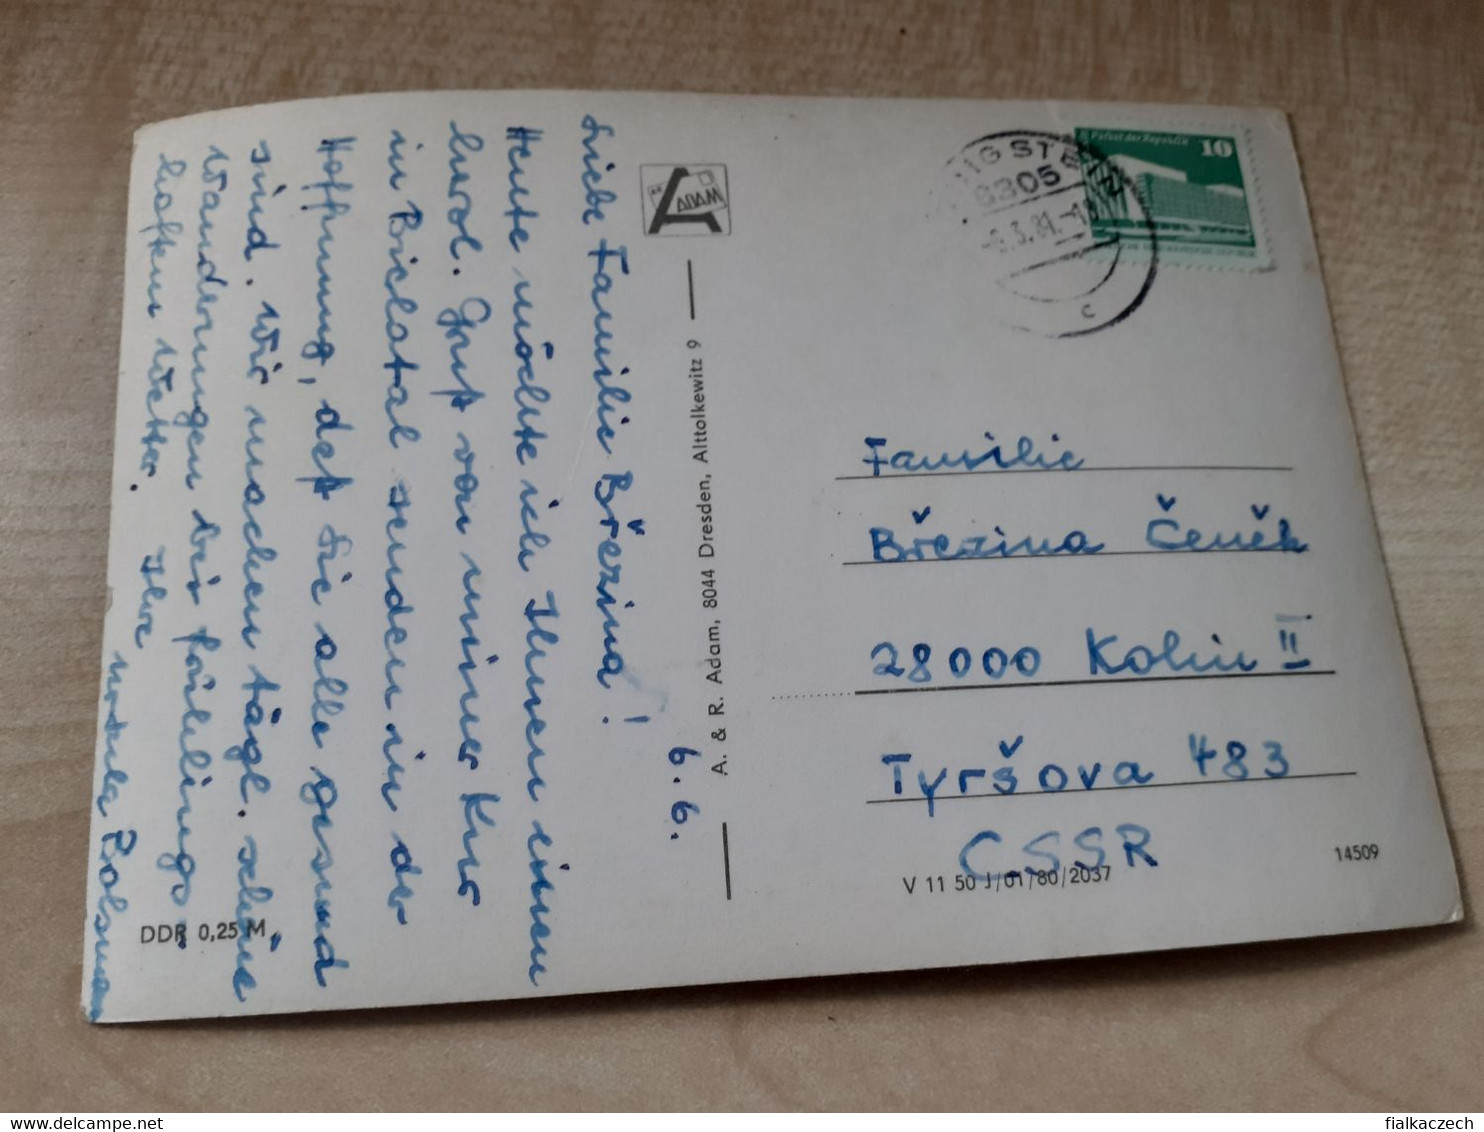 Liebe Familie Březina!
6.6.
Heute möchte ich Ihnen einen
lieben Gruß von meiner Kur
in Bielatal senden in der
Hoffnung, daß Sie alle gesund
sind. Wir machen tägl. schöne
Wanderungen bei frühlings-
haftem Wetter. Ihre Ursula
ADAM
A. & R. Adam, 8044 Dresden, Alttolkewitz 9
DDR 0,25 M
Palast der Republik
10
8305
c
Familie
Březina Čeněk
28000 Kolin II
Tyršova 483
CSSR
V 11 50 J/01/80/2037
14509
fialkaczech